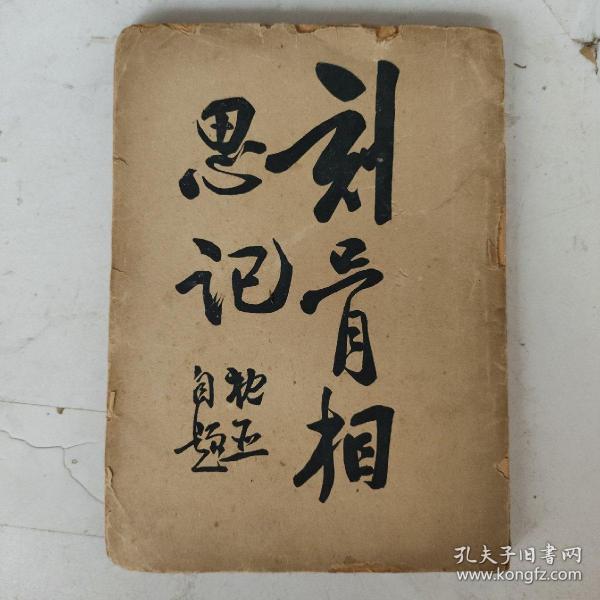 刻骨相
思记
枕亚
自题
孔夫子旧書网
www.kongfz.com